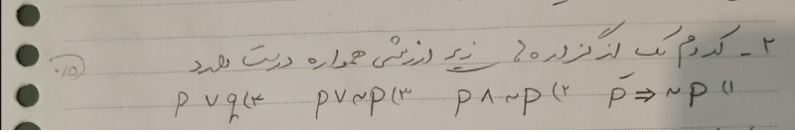 ۲ـ کدام یک از گزاره های زیر ارزشی همواره درست دارد
۱) p ⇒ ~p ۲) p ∧ ~p ۳) p ∨ ~p ۴) p ∨ q